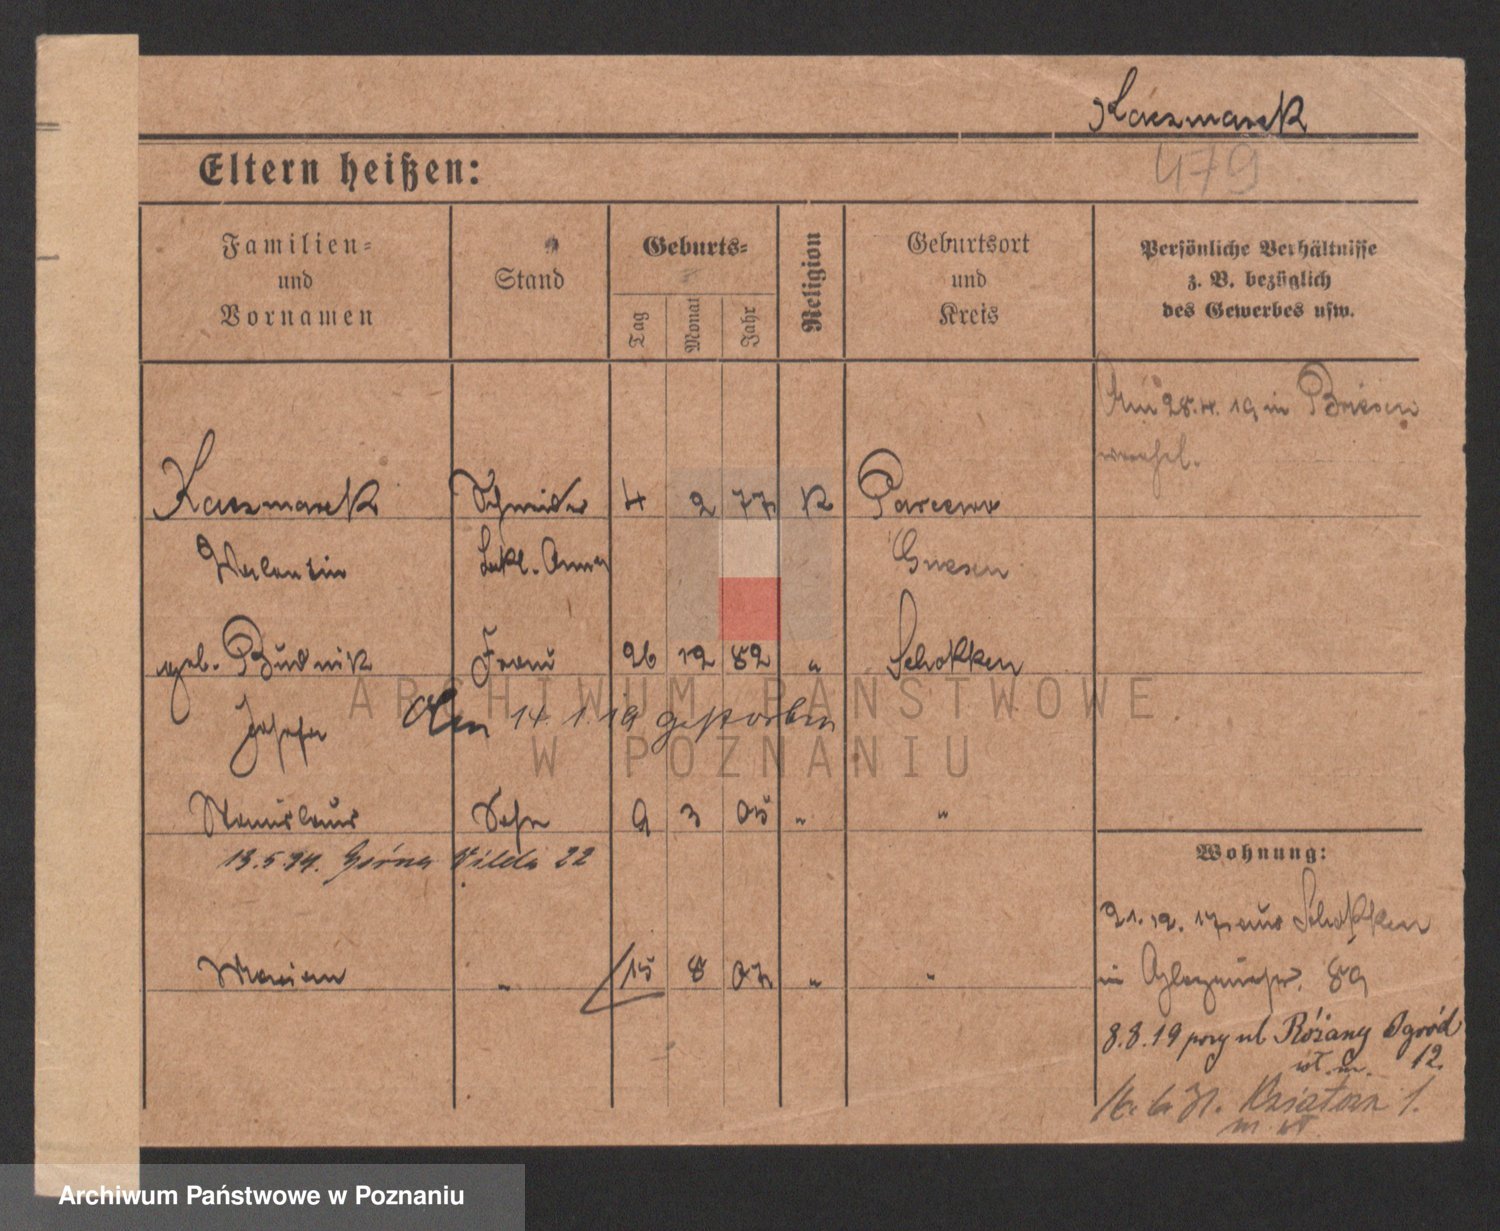 Kaczmarek
479
Eltern heißen:
Familien=
und
Vornamen
Stand
Geburts=
Tag
Monat
Jahr
Religion
Geburtsort
und
Kreis
Persönliche Verhältnisse
z. B. bezüglich
des Gewerbes usw.
Am 28.4.19 in Briesen
Kaczmarek Schneider 4 2 77 K
Valentin Gnesen
geb. Budnik Frau 26 12 82 " Schokken
Josefa Am 14.1.19 gestorben
Stanislaus Sohn 9 3 05 " "
13.5.34. Górna Wilda 22
Wohnung:
21.12.17 aus Schokken
Marian " 15 8 07 " "
in 89
8.8.19 przy ul Różany Ogród
12.
ARCHIWUM PAŃSTWOWE
W POZNANIU
Archiwum Państwowe w Poznaniu